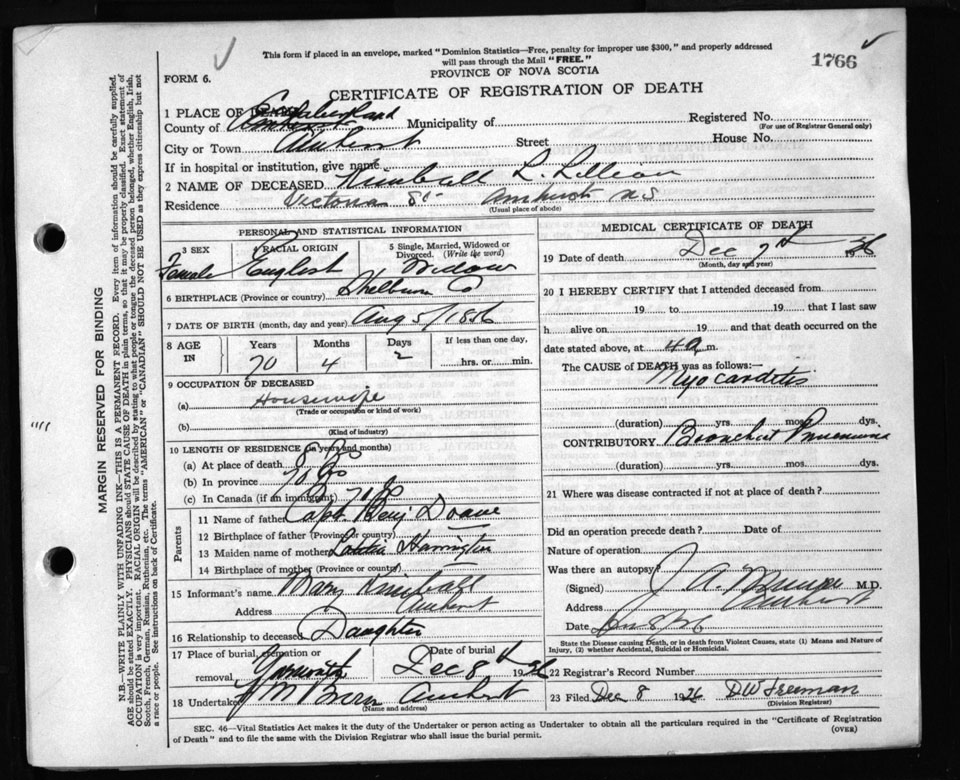 This form if placed in an envelope, marked "Dominion Statistics—Free, penalty for improper use $300," and properly addressed
will pass through the Mail "FREE."
1766
PROVINCE OF NOVA SCOTIA
FORM 6.
CERTIFICATE OF REGISTRATION OF DEATH
1 PLACE OF
County of Cumberland Municipality of Registered No.
(For use of Registrar General only)
City or Town Amherst Street House No.
If in hospital or institution, give name
2 NAME OF DECEASED Kimball L. Lillian
Residence Victoria St Amherst N S
(Usual place of abode)
PERSONAL AND STATISTICAL INFORMATION
3 SEX 4 RACIAL ORIGIN 5 Single, Married, Widowed or Divorced. (Write the word)
Female English Widow
6 BIRTHPLACE (Province or country) Shelburne Co
7 DATE OF BIRTH (month, day and year) Aug 5/1856
8 AGE IN Years Months Days If less than one day,
70 4 2 hrs. or min.
9 OCCUPATION OF DECEASED
(a) Housewife
(Trade or occupation or kind of work)
(b)
(Kind of industry)
10 LENGTH OF RESIDENCE (in years and months)
(a) At place of death
(b) In province
(c) In Canada (if an immigrant)
Parents
11 Name of father Capt. Benj Doane
12 Birthplace of father (Province or country)
13 Maiden name of mother Harrington
14 Birthplace of mother (Province or country)
15 Informant's name Mary Kimball
Address Amherst
16 Relationship to deceased Daughter
17 Place of burial, cremation or removal Date of burial
Yarmouth Dec 8th 1926
18 Undertaker Amherst
(Name and address)
MEDICAL CERTIFICATE OF DEATH
19 Date of death Dec 7th 1926
(Month, day and year)
20 I HEREBY CERTIFY that I attended deceased from
19 to 19 that I last saw
h alive on 19 and that death occurred on the
date stated above, at 4 a m.
The CAUSE of DEATH was as follows:—
Myocarditis
(duration) yrs. mos. dys.
CONTRIBUTORY Pneumonia
(duration) yrs. mos. dys.
21 Where was disease contracted if not at place of death?
Did an operation precede death? Date of
Nature of operation
Was there an autopsy?
(Signed) J. A. M.D.
Address Amherst
Date
State the Disease causing Death, or in death from Violent Causes, state (1) Means and Nature of
Injury, (2) whether Accidental, Suicidal or Homicidal.
22 Registrar's Record Number
23 Filed Dec 8 1926 D W Freeman
(Division Registrar)
SEC. 46—Vital Statistics Act makes it the duty of the Undertaker or person acting as Undertaker to obtain all the particulars required in the "Certificate of Registration
of Death" and to file the same with the Division Registrar who shall issue the burial permit.
(OVER)
MARGIN RESERVED FOR BINDING
N.B.—WRITE PLAINLY WITH UNFADING INK—THIS IS A PERMANENT RECORD. Every item of information should be carefully supplied.
AGE should be stated EXACTLY. PHYSICIANS should STATE CAUSE OF DEATH in plain terms, so that it may be properly classified. Exact statement of
OCCUPATION is very important. RACIAL ORIGIN will be described by stating to what people or tongue the deceased person belonged, whether English, Irish,
Scotch, French, German, Russian, Ruthenian, etc. The terms "AMERICAN" or "CANADIAN" SHOULD NOT BE USED as they express citizenship but not
a race or people. See instructions on back of Certificate.